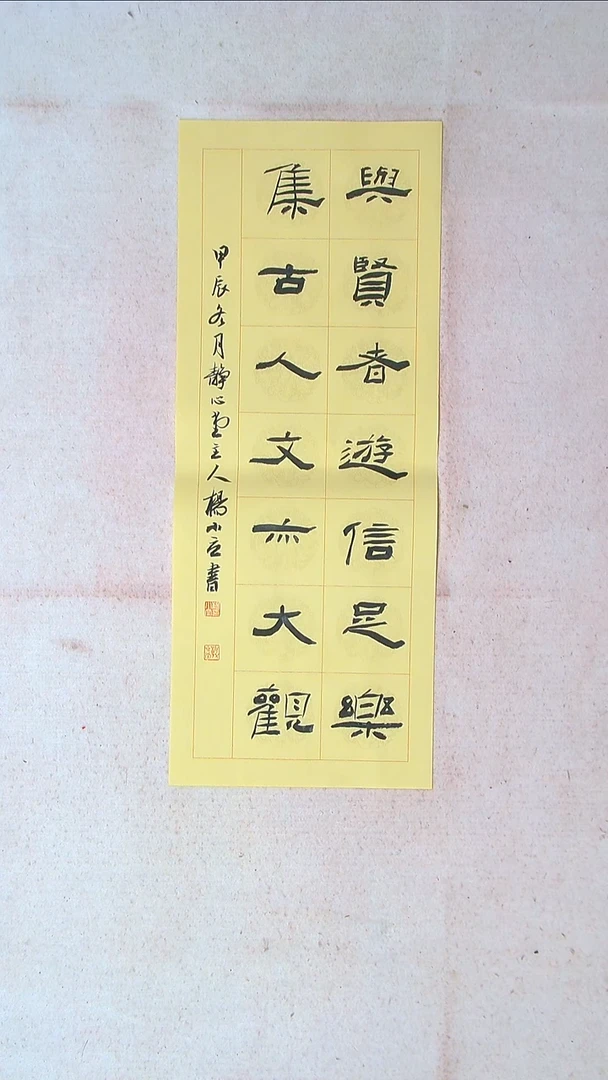 與賢者遊信足樂
集古人文亦大觀
甲辰冬月靜心堂主人楊小立書